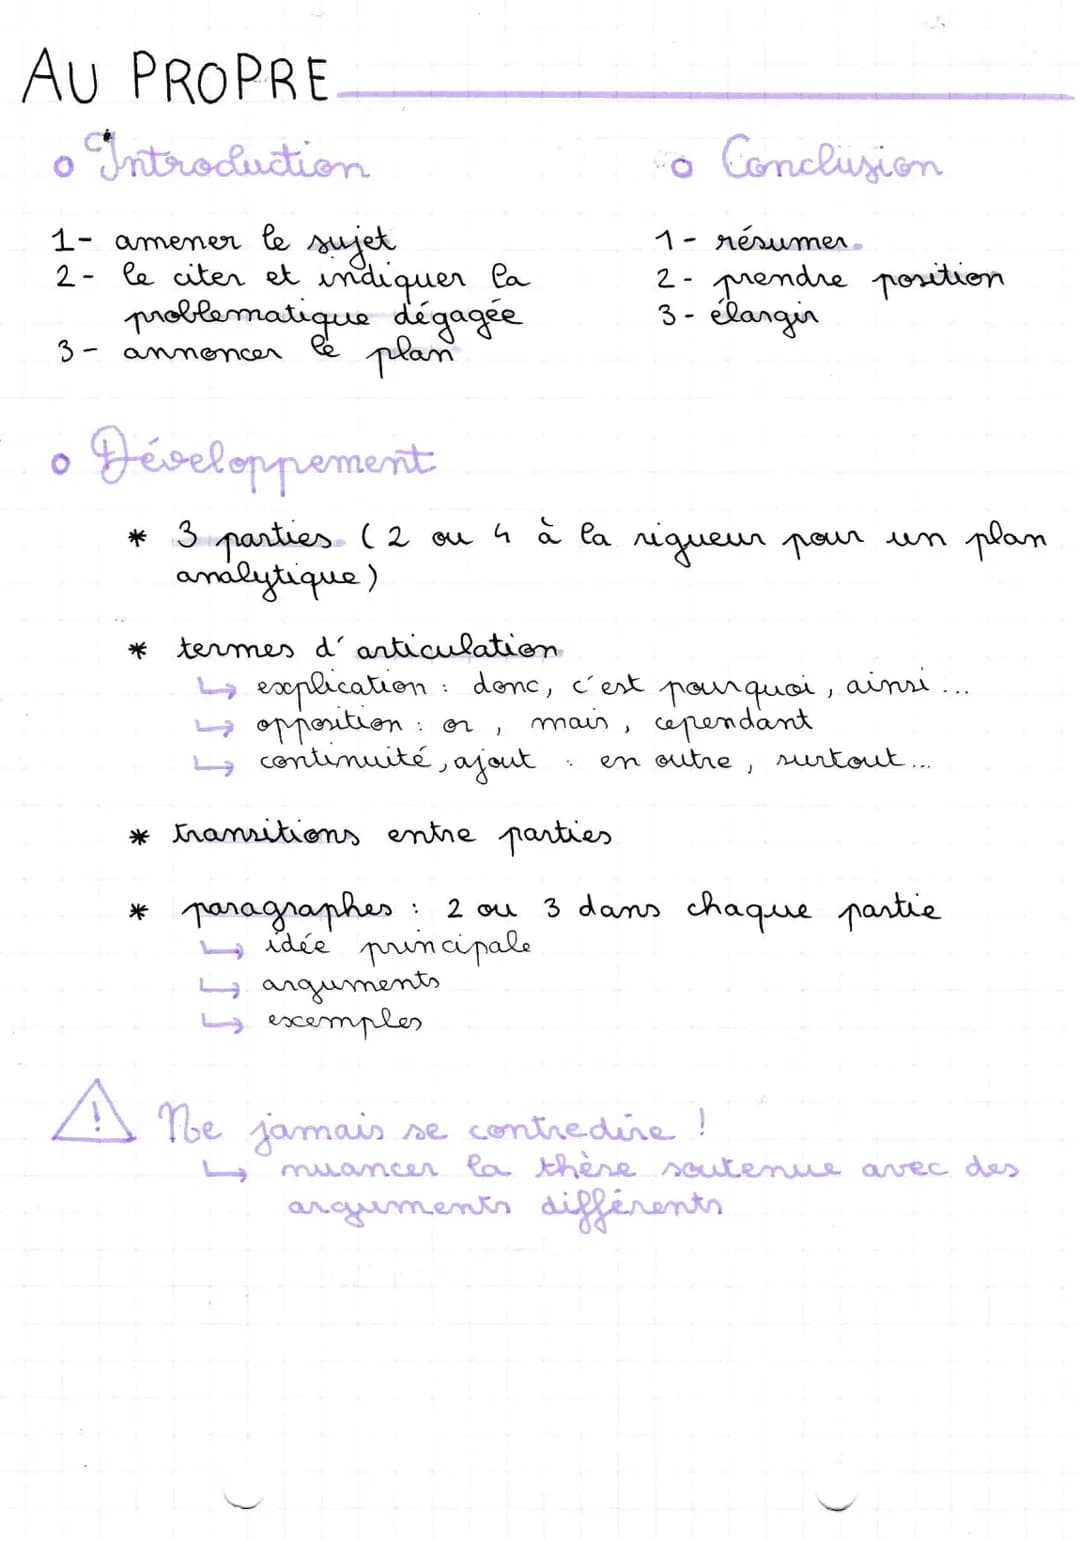 AU PROPRE
o Introduction
1- amener le sujet
2- le citer et indiquer la
problematique dégagée
3- annoncer le plan
o Conclusion
1- résumer
2- prendre position
3- élargir
o Développement
* 3 parties (2 ou 4 à la rigueur pour un plan
analytique)
* termes d'articulation
↳ explication : donc, c'est pourquoi, ainsi...
↳ opposition : or, mais, cependant
↳ continuité, ajout : en outre, surtout...
* transitions entre parties
* paragraphes : 2 ou 3 dans chaque partie
↳ idée principale
↳ arguments
↳ exemples
⚠ Ne jamais se contredire !
↳ nuancer la thèse soutenue avec des
arguments différents